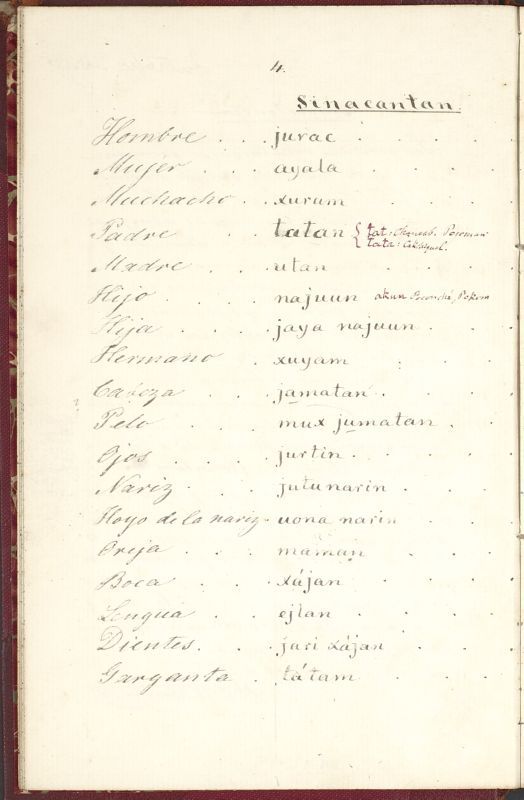 4.
Sinacantan.
Hombre . . jurac . . . .
Mujer . . . ayala . . . .
Muchacho . . xuram . . . .
Padre . . . tatan { tat: Poroman
tata: Cakchiquel.
Madre . . . utan . . . .
Hijo . . . . najuun akun Pocon
Hija . . . . jaya najuun . . .
Hermano . . xuyam . . .
Cabeza . . . jamatan . . .
Pelo . . . mux jumatan . .
Ojos . . . jurtin . . . .
Nariz . . . jutu narin . . .
Hoyo de la nariz . uona narin . .
Oreja . . . maman . . .
Boca . . . xájan . . . .
Lengua . . . ejlan . . . .
Dientes. . . jari xájan . . .
Garganta . . tátam . . . .